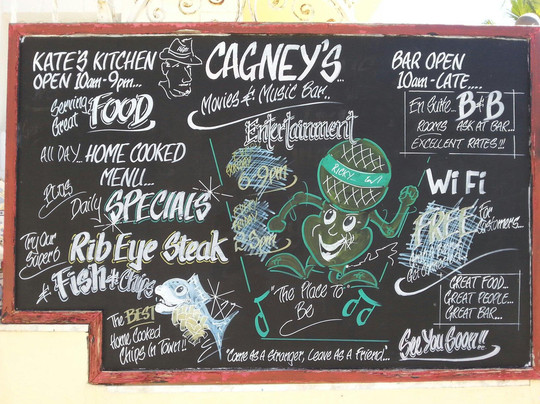 KATE'S KITCHEN
OPEN 10am-9pm...
Serving
Great
FOOD
ALL DAY... HOME COOKED
MENU...
PLUS
Daily SPECIALS
Try Our
Superb
Rib Eye Steak
& Fish & Chips
The BEST
Home Cooked
Chips In Town!!
CAGNEY'S
Movies & Music Bar..
Entertainment
6-9pm
RICKY
"The Place To
Be
"Come As A Stranger, Leave As A Friend...
BAR OPEN
10am-LATE....
En Suite.. B&B
ROOMS ASK AT BAR...
EXCELLENT RATES!!!
Wi Fi
FREE For
Customers..
GREAT FOOD...
GREAT PEOPLE...
GREAT BAR...
See You Soon!!